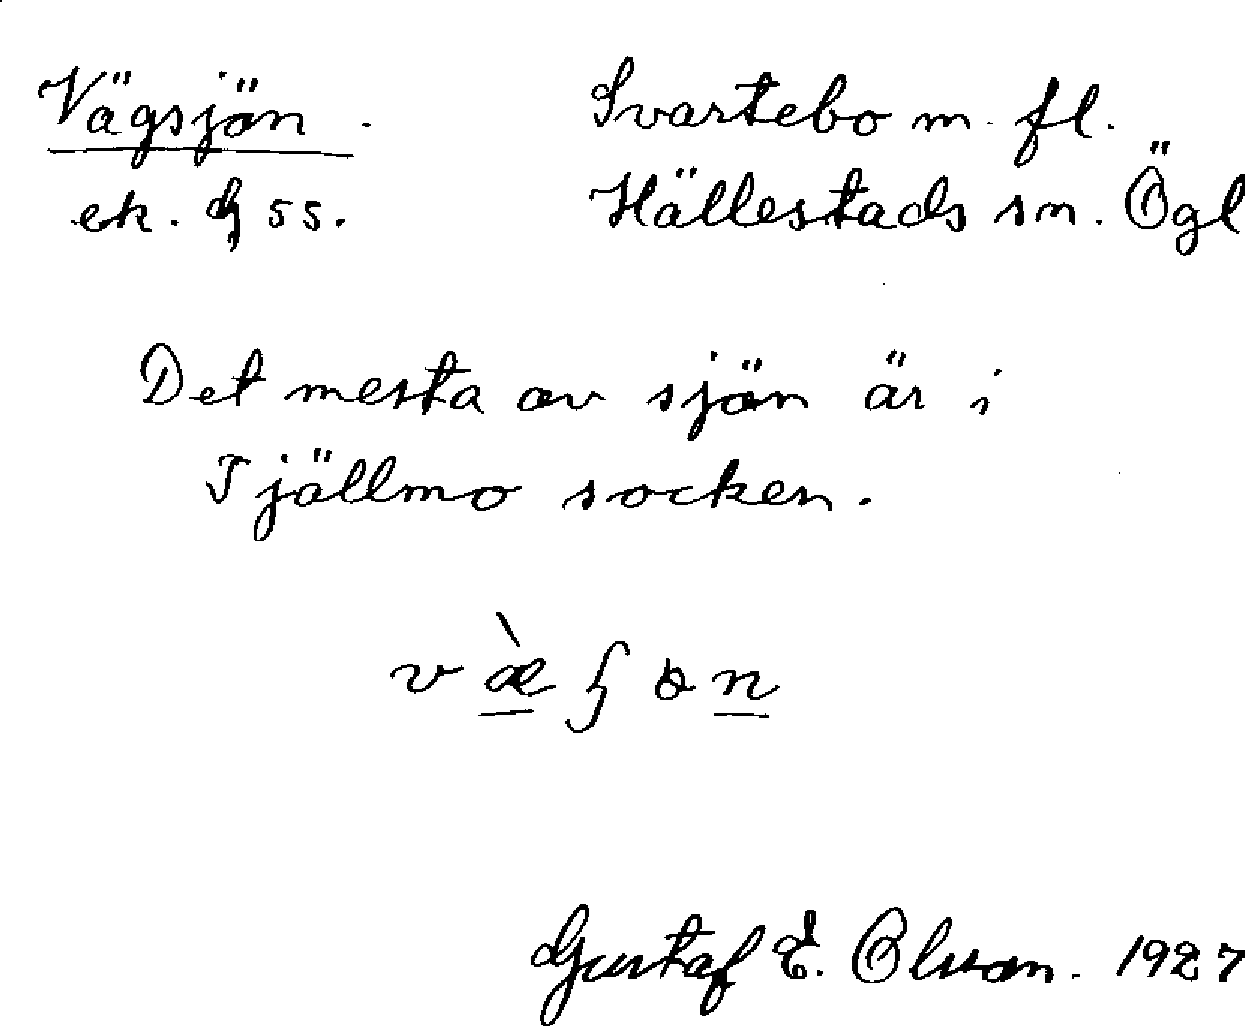 Vägsjön. Svartebo m. fl.
ek. 55. Hällestads sn. Ögl
Det mesta av sjön är i
Tjällmo socken.
Gustaf E. Olsson. 1927